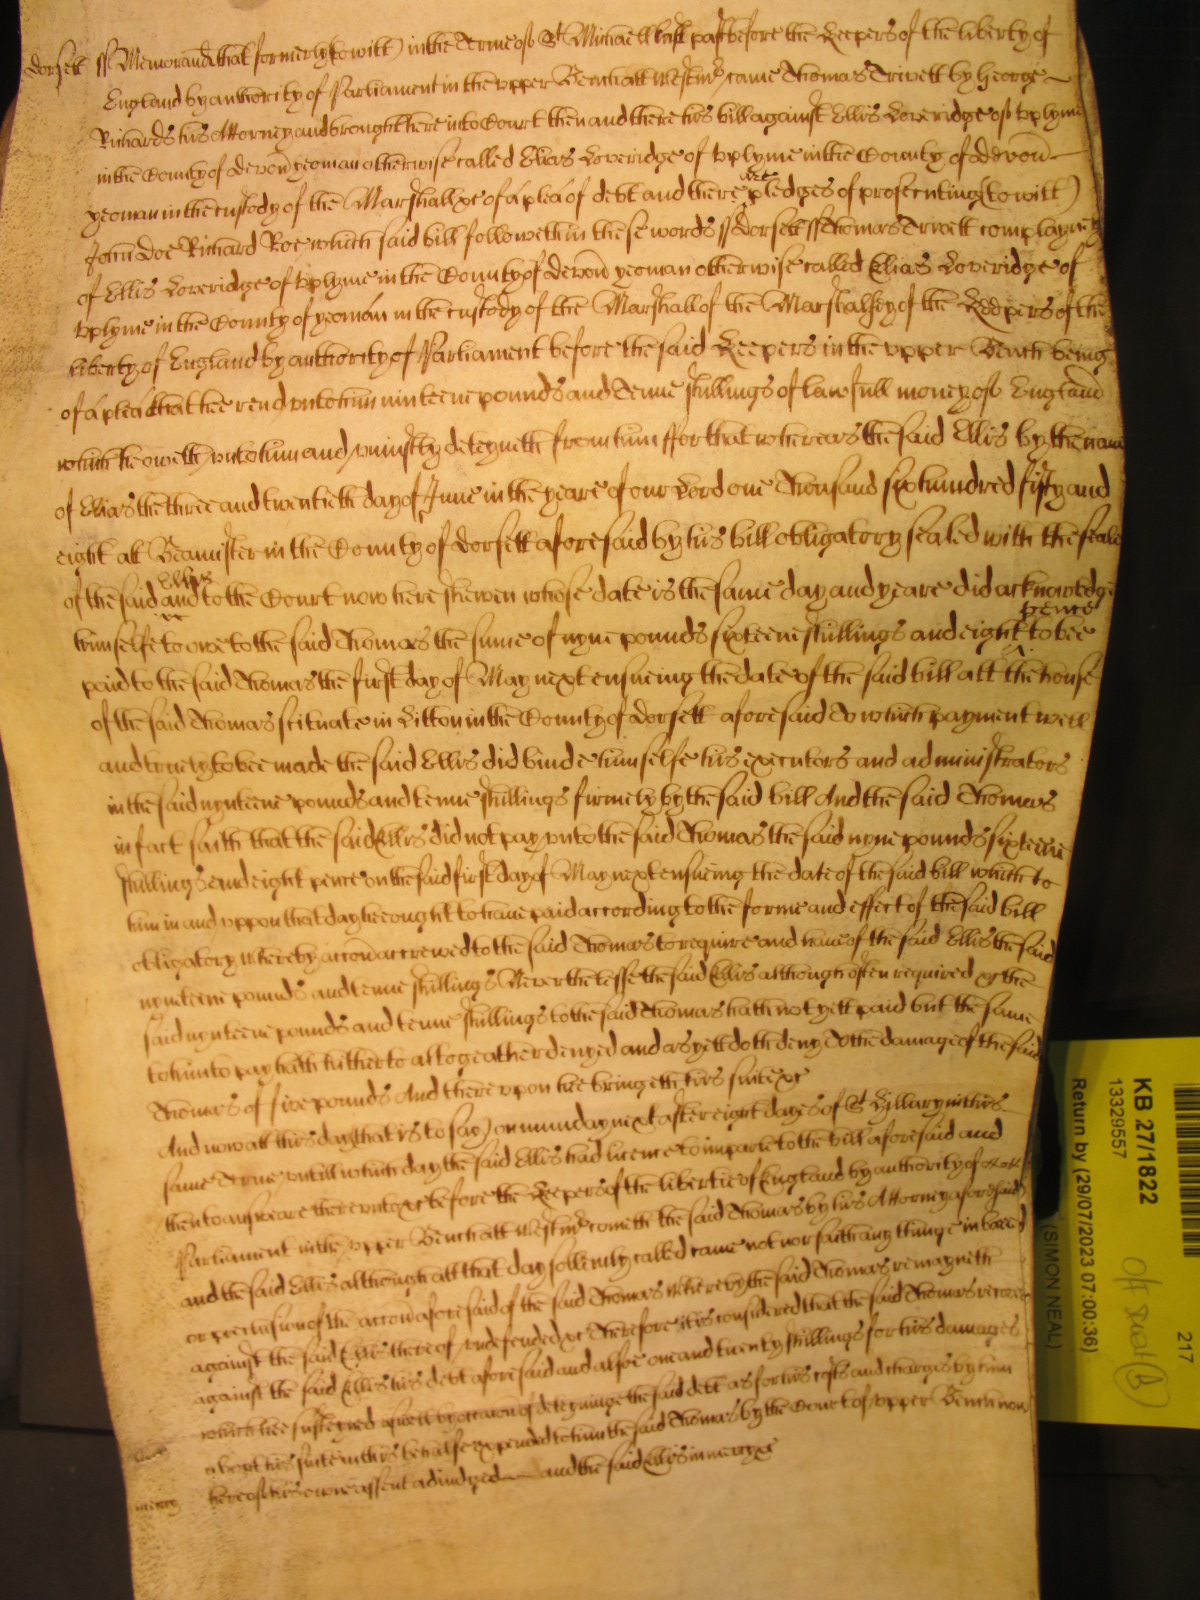 Dorsett ss Memorand that formerly (to witt) in the Terme of St Michaell last past before the Keepers of the liberty of
England by authority of Parliament in the upper Bench att Westmr came Thomas Trivett by George
Richards his Attorney and brought here into Court then and there his bill against Ellis Loveridge of Uplyme
in the County of Devon yeoman otherwise called Elias Loveridge of Uplyme in the County of Devon
yeoman in the custody of the Marshall &c of a plea of debt and there are pledges of prosecuting (to witt)
John Doe Richard Roe which said bill followeth in these words ss Dorsett ss Thomas Trivett complayneth
of Ellis Loveridge of Uplyme in the County of Devon yeoman otherwise called Elias Loveridge of
Uplyme in the County of yeoman in the custody of the Marshall of the Marshalsey of the Keepers of the
liberty of England by authority of Parliament before the said Keepers in the upper Bench being
of a plea that hee rend unto him ninteene pounds and tenne shillings of lawfull money of England
which he oweth unto him and uniustly deteyneth from him ffor that whereas the said Ellis by the name
of Elias the three and twentieth day of June in the yeare of our Lord one thousand six hundred fifty and
eight att Beamister in the County of Dorsett aforesaid by his bill obligatory sealed with the seale
of the said Ellis and to the Court now here shewen whose date is the same day and yeare did acknowledge
himselfe to owe to the said Thomas the sume of nyne pounds sixteene shillings and eight pence to bee
paid to the said Thomas the first day of May next ensueing the date of the said bill att the house
of the said Thomas scituate in Litton in the County of Dorsett aforesaid To which payment well
and truely to bee made the said Ellis did binde himselfe his executors and administrators
in the said nynteene pounds and tenne shillings firmely by the said bill And the said Thomas
in fact saith that the said Ellis did not pay unto the said Thomas the said nyne pounds sixteene
shillings and eight pence on the said first day of May next ensueing the date of the said bill which to
him in and uppon that day he ought to have paid according to the forme and effect of the said bill
obligatory Whereby accon accrewed to the said Thomas to require and have of the said Ellis the said
nynteene pounds and tenne shillings Neverthelesse the said Ellis although often required &c the
said nynteene pounds and tenne shillings to the said Thomas hath not yett paid but the same
to him to pay hath hitherto altogeather denyed and as yett doth deny To the damage of the said
Thomas of five pounds And thereupon hee bringeth his suite &c
And now att this day (that is to say) on munday next after eight dayes of St Hillary in this
same Terme untill which day the said Ellis had licence to imparle to the bill aforesaid and
then to answeare thereunto &c before the Keepers of the libertie of England by authority of
Parliament in the upper Bench att Westmr cometh the said Thomas by his Attorney aforesaid
and the said Ellis although att that day sollemly called came not nor saith any thinge in barr
or preclusion of the accon aforesaid of the said Thomas Whereby the said Thomas remayneth
against the said Ellis thereof undefended &c Therefore it is considered that the said Thomas recover
against the said Ellis his debt aforesaid and alsoe one and twenty shillings for his damages
which hee susteyned aswell by occacon of deteyninge the said debt as for his costs and charges by him
about his suite in this behalfe expended to him the said Thomas by the Court of upper Bench now
mercy here of his owne assent adiudged and the said Ellis in mercy &c
KB 27/1822
13329557
Return by (29/07/2023 07:00:36)
(SIMON NEAL)
217